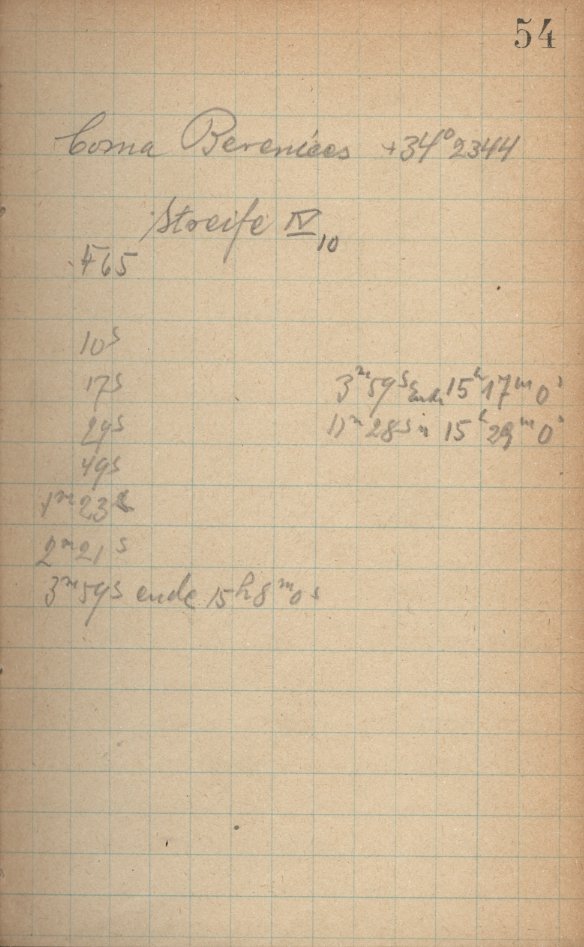 54
Coma Berenices +34° 2344
Streife IV 10
465
10s
17s
29s
49s
1m 23s
2m 21s
3m 59s ende 15h 8m 0s
3m 59s Ende 15h 17m 0s
11m 28s " 15h 29m 0s